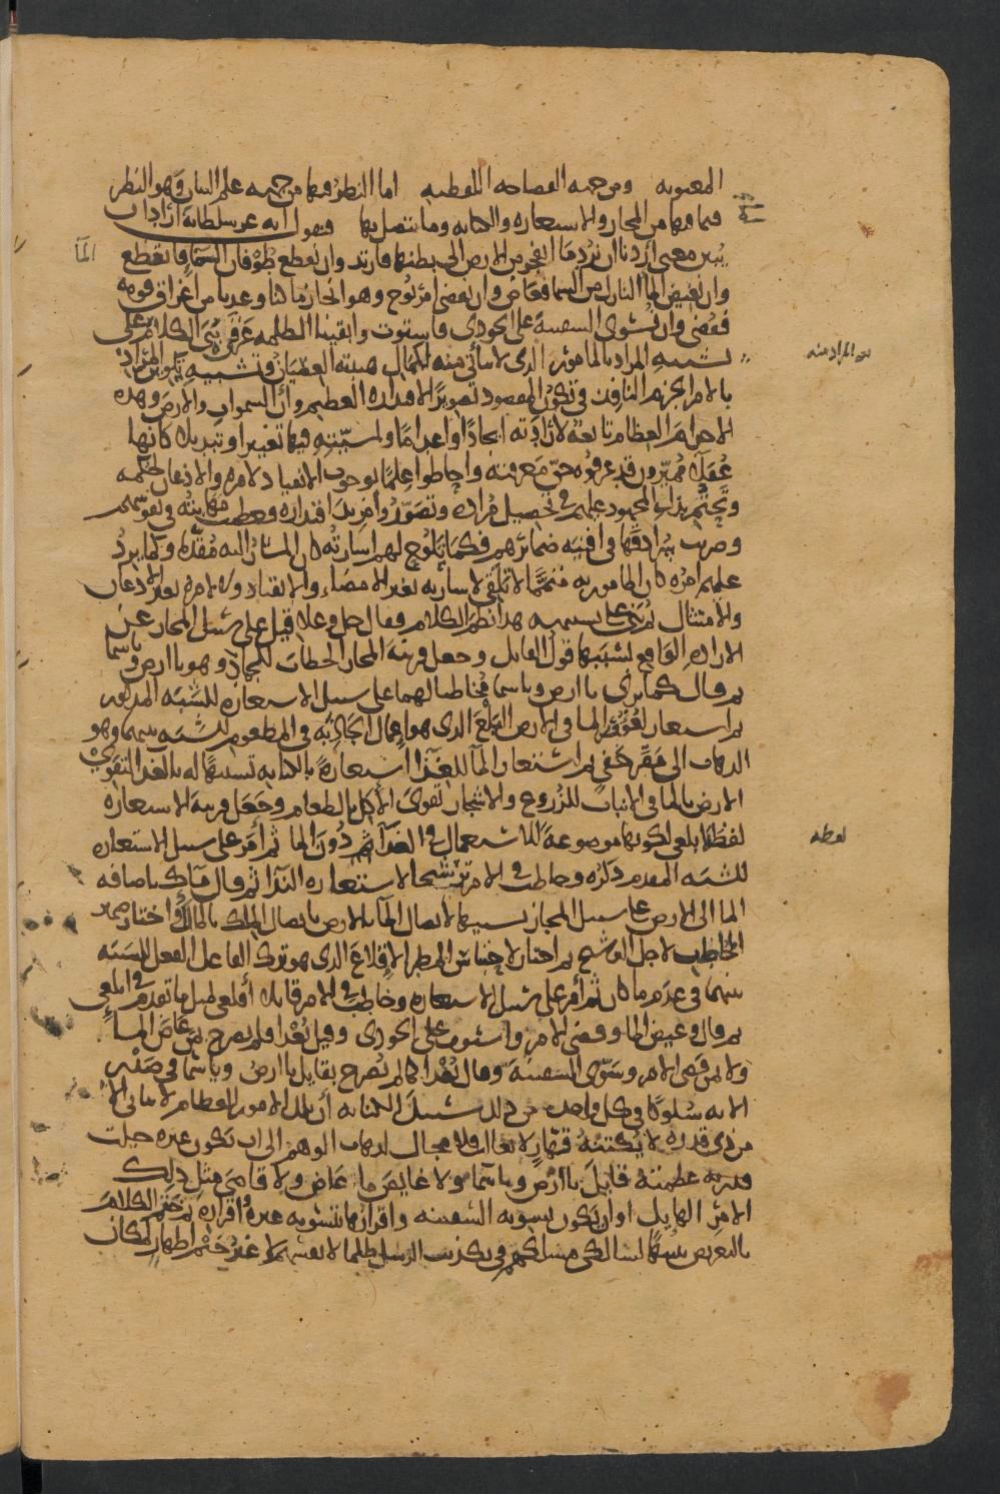 المعنويه ومن جهه الفصاحه اللفظيه اما النظر فيها من جهه علم البيان وهو النظر
فيما فيها من المجاز والاستعاره والكنايه وما يتصل بها فنقول انه عز سلطانه اراد ان
يبين معنى اردنا ان نرد ما انفجر من الارض الى بطنها فارتد وان نقطع طوفان السماء فانقطع
الما
وان نغيض الما النازل من السما فغاض وان نقضى امر نوح وهو انجاز ما كنا وعدنا من اغراق قومه
فقضى وان نسوى السفينه على الجودى فاستوت وابقينا الظلمه غرقى بنى الكلام على
تشبيه المراد بالمامور الذى لا يتاتى منه لكمال هيبته العصيان وتشبيه تكوين المراد
من المراد منه
بالامر الجزم النافذ فى تكون المقصود تصويرا لاقتداره العظيم وان السموات والارض وهذه
الاجرام العظام تابعة لارادته ايجادا واعداما ولمشيته فيها تغييرا وتبديلا كانها
عقلاء مميزون قد عرفوه حق معرفته واحاطوا علما بوجوب الانقياد لامره والاذعان لحكمه
وتحتم بذل المجهود عليهم فى تحصيل مراده وتصوروا مزيد اقتداره فعظمت مهابته فى نفوسهم
وضربت سرادقها فى افنيه ضمائرهم فكما يلوح لهم اشارته كان المشار اليه مقدما وكما يرد
عليهم امره كان المامور به متمما لا تلقى لاشارته بغير الامضاء والانقياد ولا لامره بغير الاذعان
والامتثال ثم بنى على تشبيهه هذا نظم الكلام فقال جل وعلا قيل على سبيل المجاز عن
الاراده الواقع بسببها قول القايل وجعل قرينه المجاز الخطاب للجماد وهو يا ارض ويا سما
ثم قال كما ترى يا ارض ويا سما مخاطبا لهما على سبيل الاستعاره للشبه المذكور
ثم استعار لغوور الما فى الارض البلع الذى هو اعمال الجاذبه فى المطعوم للشبه بينهما وهو
الذهاب الى مقر خفى ثم استعار الما للغذا استعارة بالكنايه تشبيها له بالغذا لتقوى
الارض بالما فى الانبات للزروع والاشجار تقوى الاكل بالطعام وجعل قرينه الاستعاره
لفظه ابلعى لكونها موضوعة للاستعمال فى الغذا دون الما ثم امر على سبيل الاستعاره
لفظه
للشبه المقدم ذكره وخاطب فى الامر ترشيحا لاستعاره الندا ثم قال ماك باضافه
الما الى الارض على سبيل المجاز تشبيها لاتصال الما بالارض باتصال الملك بالمالك واختار ضمير
الخطاب لاجل الترشيح ثم اختار لاحتباس المطر الاقلاع الذى هو ترك الفاعل الفعل للشبه
بينهما فى عدم ما كان ثم امر على سبيل الاستعاره وخاطب فى الامر قايلا اقلعى لمثل ما تقدم فى ابلعى
ثم قال وغيض الما وقضى الامر واستوت على الجودى وقيل بعدا فلم يصرح بمن غاض الما
ولا بمن قضى الامر وسوى السفينه وقال بعدا كما لم يصرح بقايل يا ارض ويا سما فى صدر
الايه سلوكا فى كل واحد من ذلك سبيل الكنايه ان تلك الامور العظام لا تتاتى الا
من ذى قدره لا يكتنه قهار لا يغالب فلا مجال لذهاب الوهم الى ان يكون غيره جلت
قدرته عظمته قايل يا ارض ويا سما ولا غايض ما غاض ولا قاضى مثل ذلك
الامر الهايل او ان يكون تسويه السفينه واقرارها بتسويه غيره واقراره ثم ختم الكلام
بالتعريض تنبيها لسالكى مسلكهم فى تكذيب الرسل ظلما لانفسهم لا غير ختم اظهار لمكان